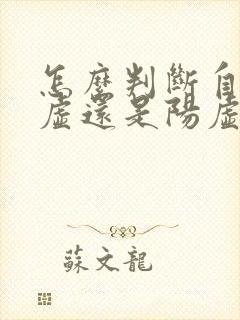 怎麼判斷自
虛還是陽虛
蘇文龍